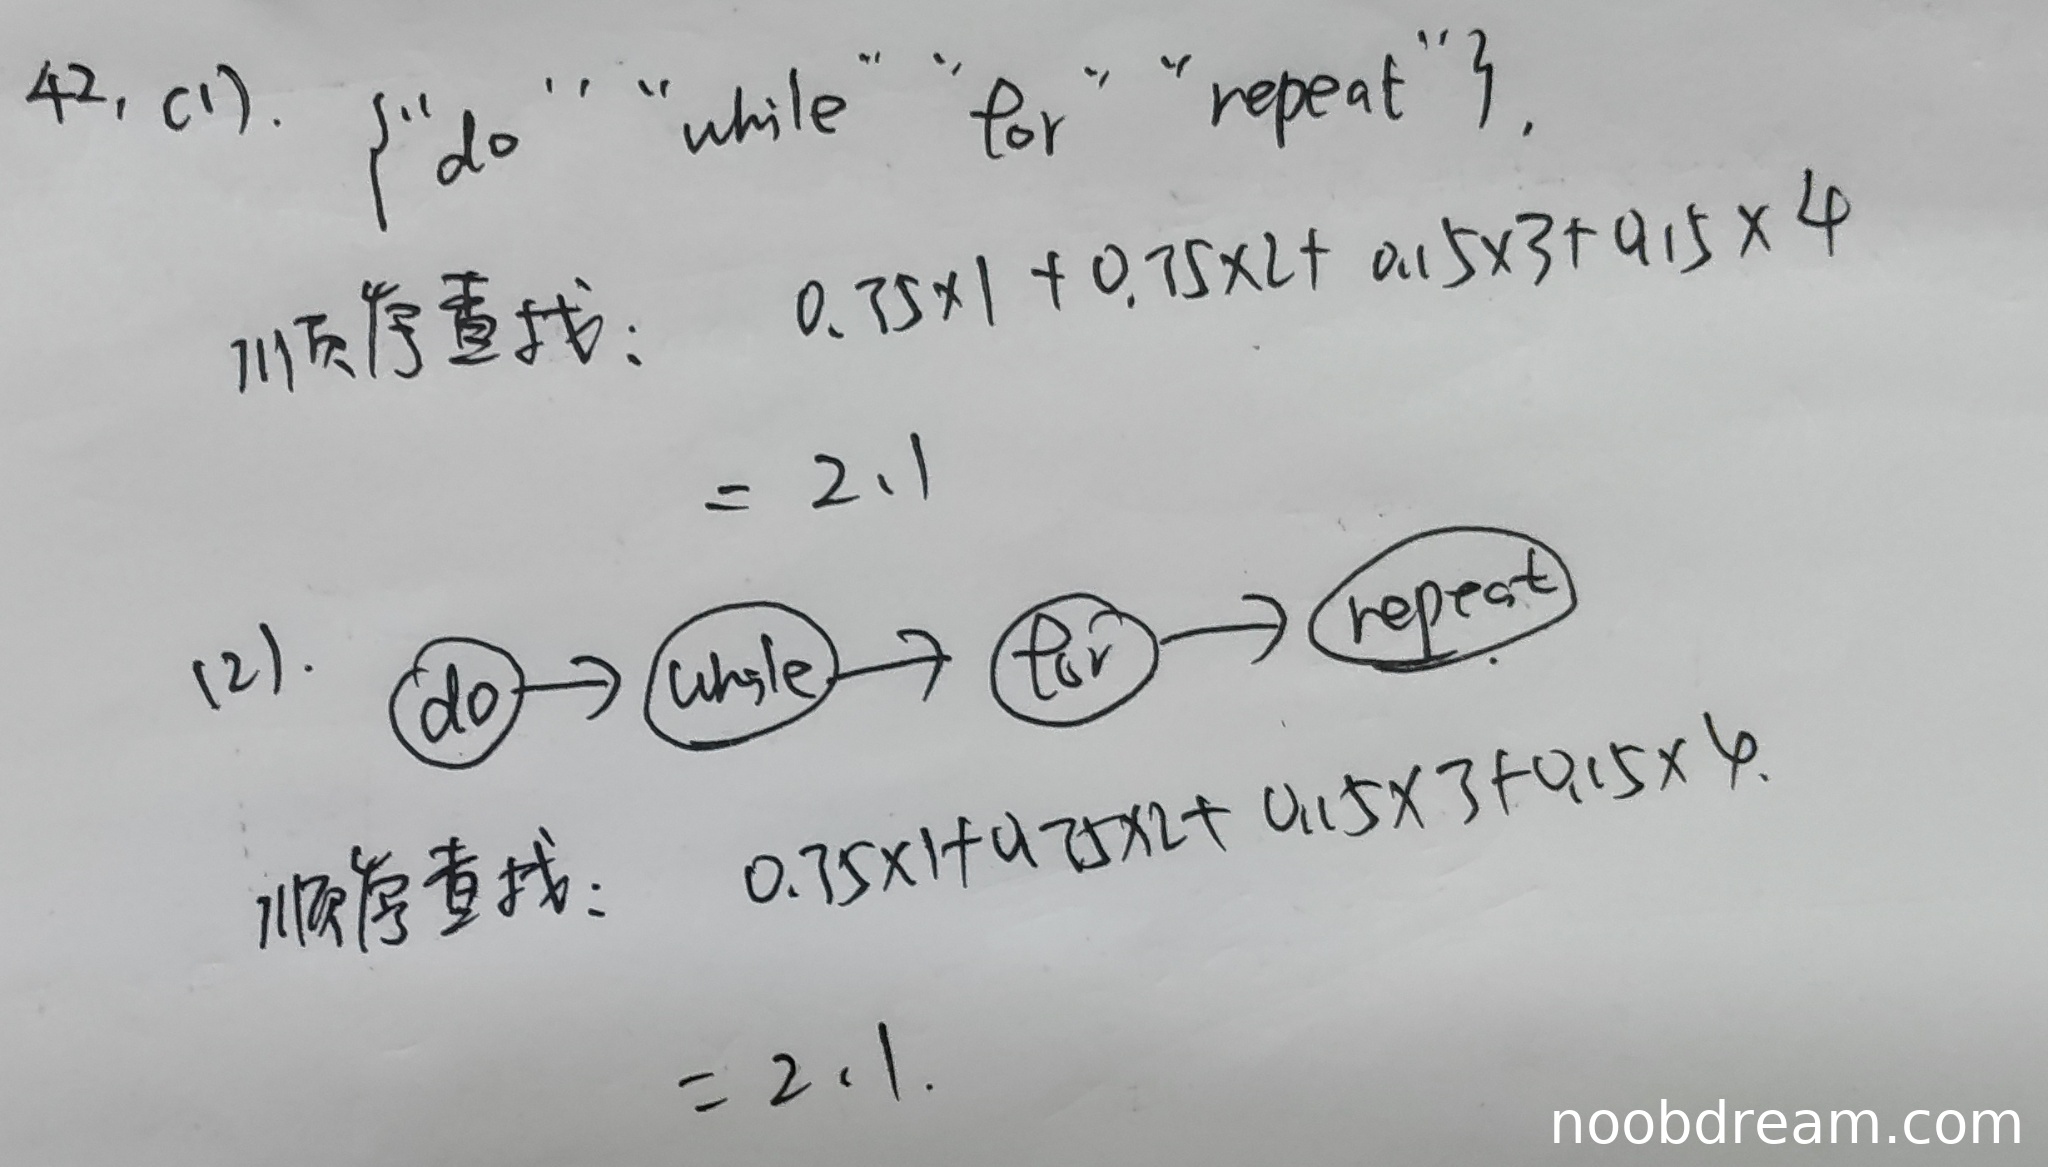 42, (1). {"do" "while" "for" "repeat"}.
顺序查找: 0.35×1+0.35×2+0.15×3+0.15×4
= 2.1
(2). do → while → for → repeat
顺序查找: 0.35×1+0.35×2+0.15×3+0.15×4.
= 2.1.
noobdream.com